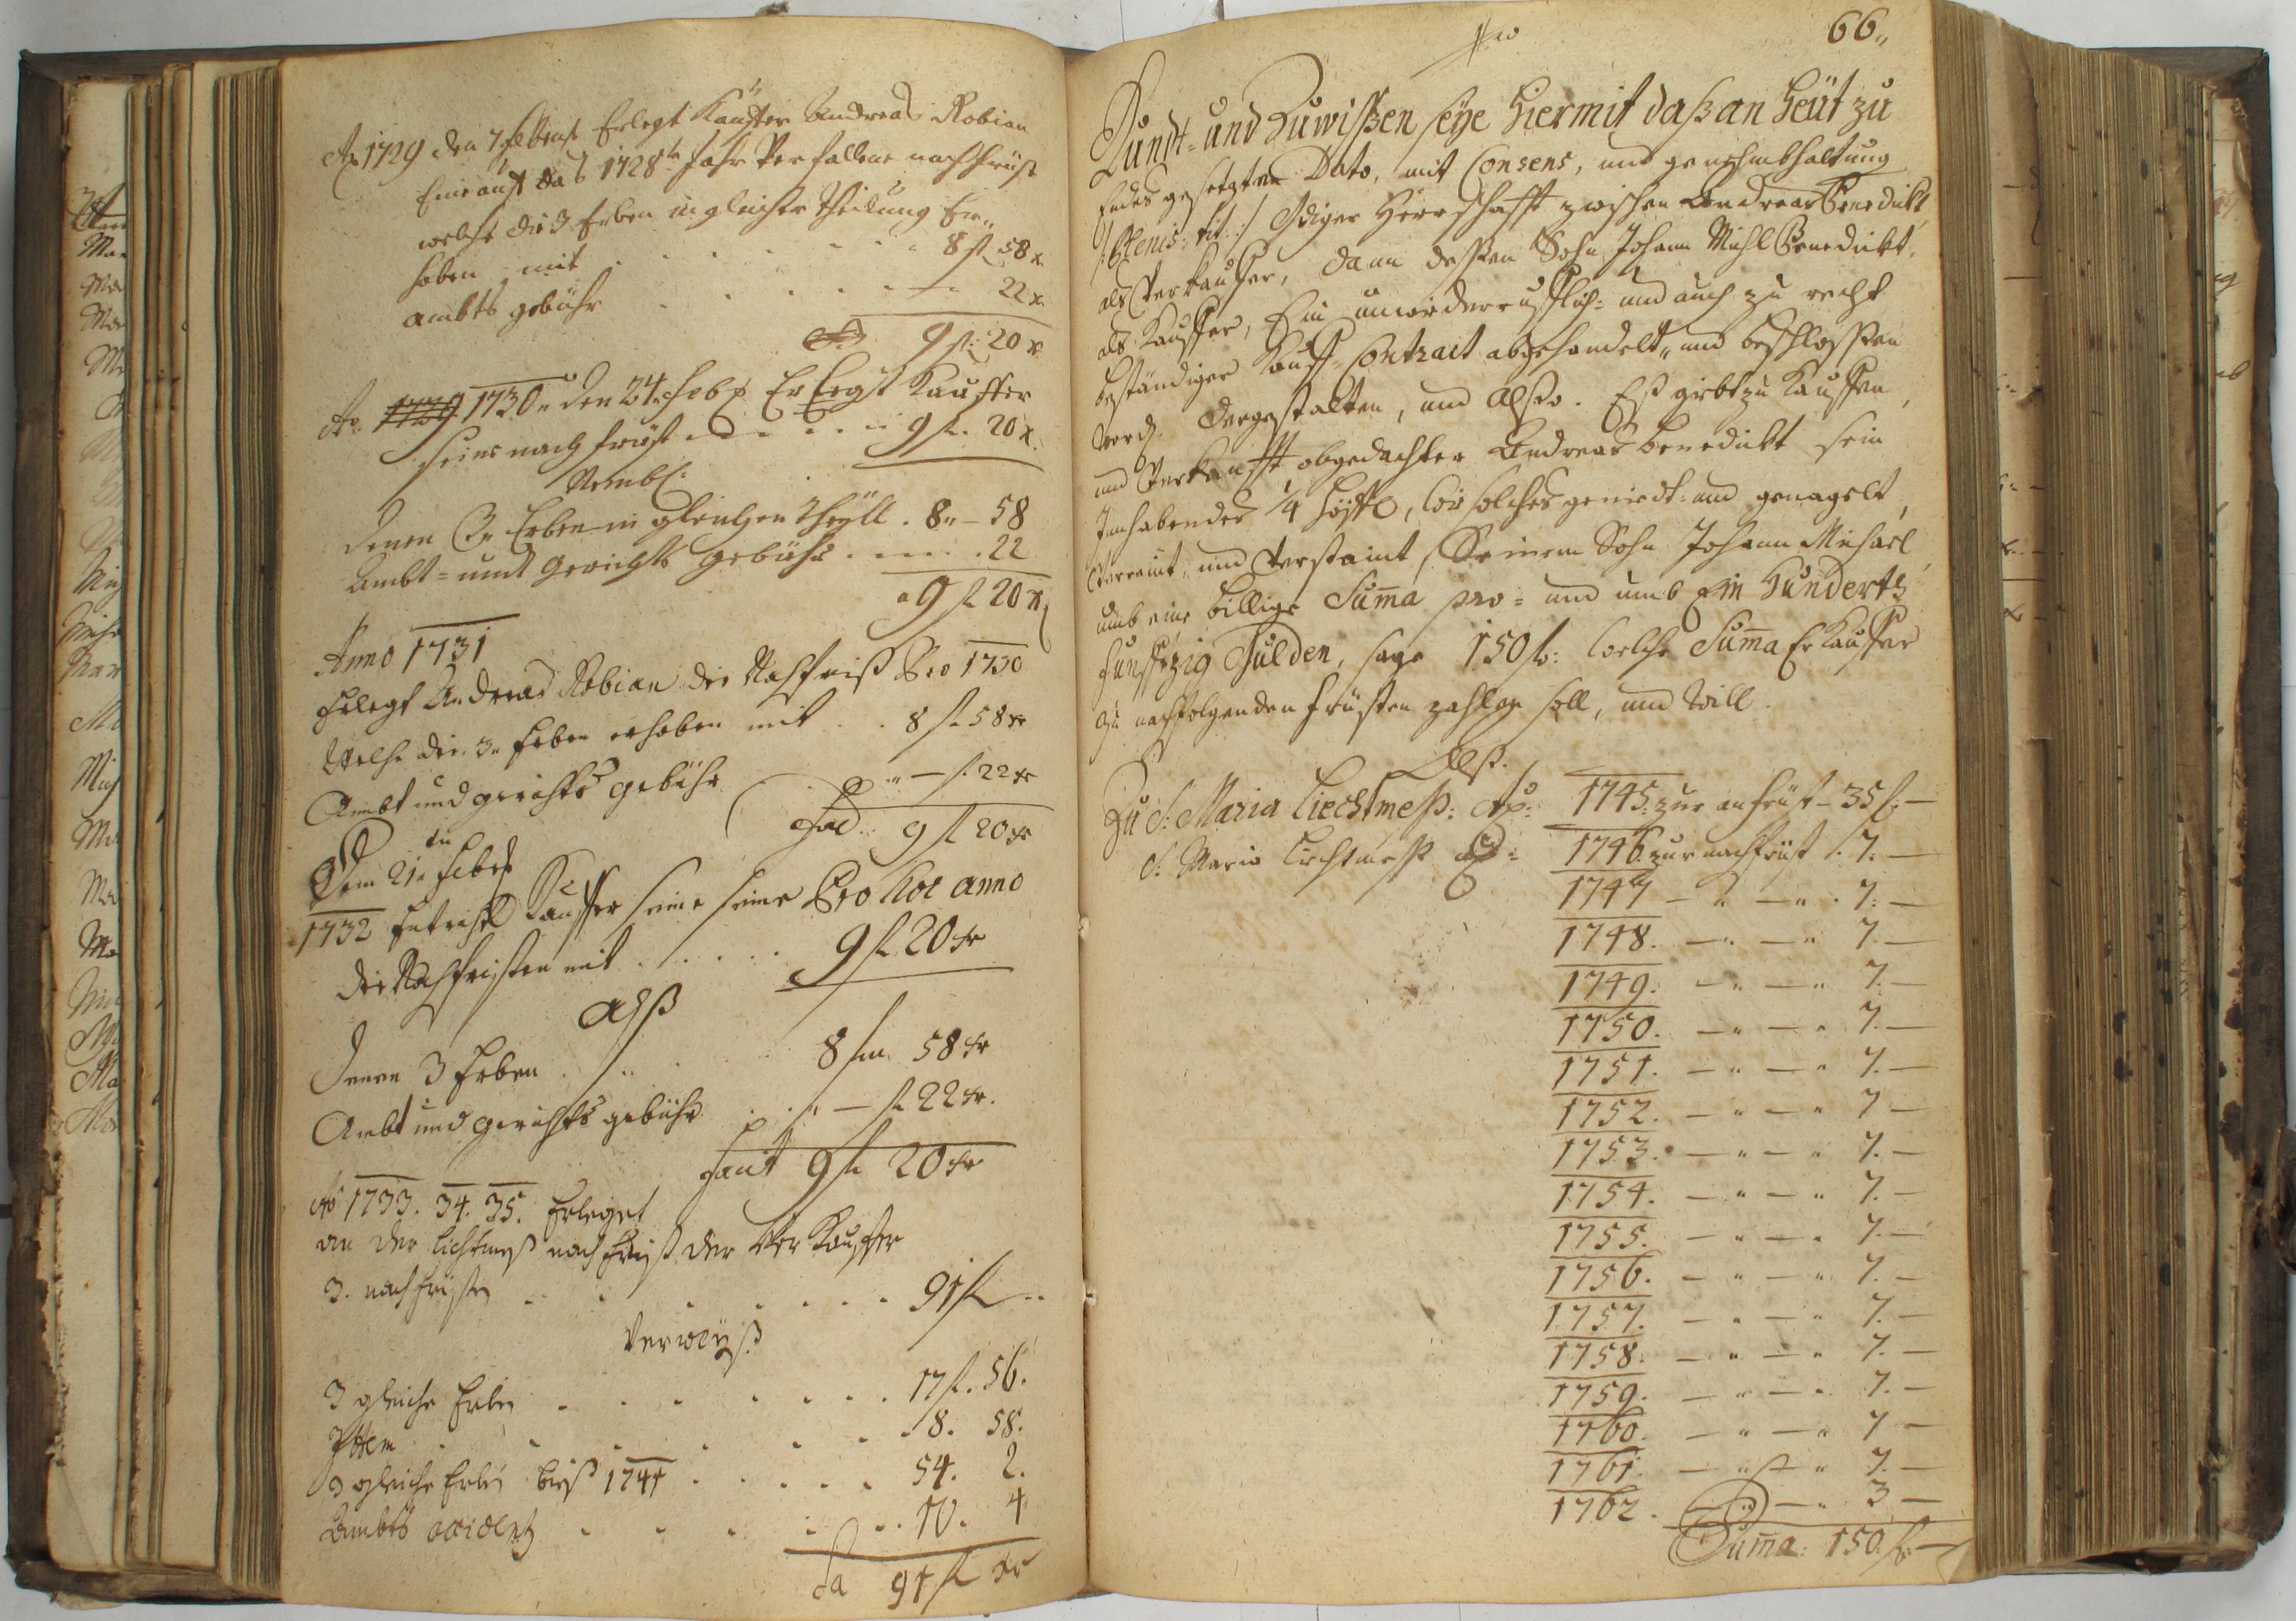 Ao 1729 den 7 Erlegt Kauffer Andreas Robian
Eine auf das 1728te Jahr Verfallene nachfrist
welche die 3 Erben in gleicher theilung Er„
hoben mit . . . . 8 fl 58 x.
ambts gebühr . . . . — 22 x.
9 fl: 20 x.
Ao. 1729 1730„ den 24. Feb. Er Legt Kauffer
seine nach frist . . . . 9 fl. 20 x.
Nembl:
denen 3 Erben in gleichen theyll . 8„ – 58
Ambt= undt Gerichts gebühr . . . . 22
9 fl 20 x
Anno 1731
Erlegt Andreas Robian die Nachfrist Pro 1730
Welche die 3„ Erben erhoben mit . . 8 fl 58 xr
Ambt und gerichts gebühr . . „ — fl. 22 xr
9 fl 20 xr
Dem 21„ ten Feb
1732 Kauffer seine Pro hoc anno
die Nachfristen mit . . . . . 9 fl 20 xr
alß
Denen 3 Erben . . . 8 fl 58 xr
Ambt und gerichts gebühr . . „ — fl 22 xr.
9 fl 20 xr
Ao 1733. 34. 35. Erleget
an der lichtmeß nach frist der Ver Kauffer
3. nachfristen . . . . . . . 91 fl ..
Verweiß
3 gleiche Erben . . . . . . . 17 fl. 56.
Ittem . . . . . . . 8. 58.
3 gleiche Erben biß 1741 . . . . . 54. 2.
Ambts . . . . . . 10. 4
Sa 91 fl xr
66„
Kundt= und Zuwißen seye hiermit daß an heüt zu
Endes gesetzten Dato, mit Consens, und genehmbhaltung
/: Plenis: tit: :/ Gdiger Herrschafft zwischen Andreas Benedickt
als Verkauffer, dann deßen Sohn Johann Michl Benedickt
als Kauffer, Ein unwiederrufflich= und auch zu recht
beständiger Kauff=Contract abgehandelt„ und beschloßen
word. dergestalten, und alßo. Eß giebt zu Kauffen,
und Verkaufft obgedachter Andreas Benedickt sein
Innhabendes 1/4 höffl, wie solches geniedt= und genagelt,
Verreint, und Verstaint, Seinem Sohn Johann Michael
umb eine billige Suma pro= und umb Ein Hundert
funffzig Gulden, sage 150 fl: welche Suma Er Kauffer
zu nachfolgenden fristen zahlen soll, und will.
Alß.
Zu S: Maria Liechtmeß: Ao: 1745. zur anfrist – 35 f. —
S: Maria Liechtmeß Ao: 1746. zur nachfrist . 7. —
1747 – „ — „ . 7. —
1748. — „ — „ 7. —
1749. — „ — „ 7. —
1750. — „ — „ 7. —
1751. — „ — „ 7. —
1752. — „ — „ 7 —
1753. — „ — „ 7. —
1754. — „ — „ 7. —
1755. — „ — „ 7. —
1756. — „ — „ 7. —
1757. — „ — „ 7. —
1758. — „ — „ 7. —
1759. — „ — „ 7. —
1760. — „ — „ 7 —
1761. — „ — „ 7. —
1762. — „ — „ 3 —
Suma: 150. fl —